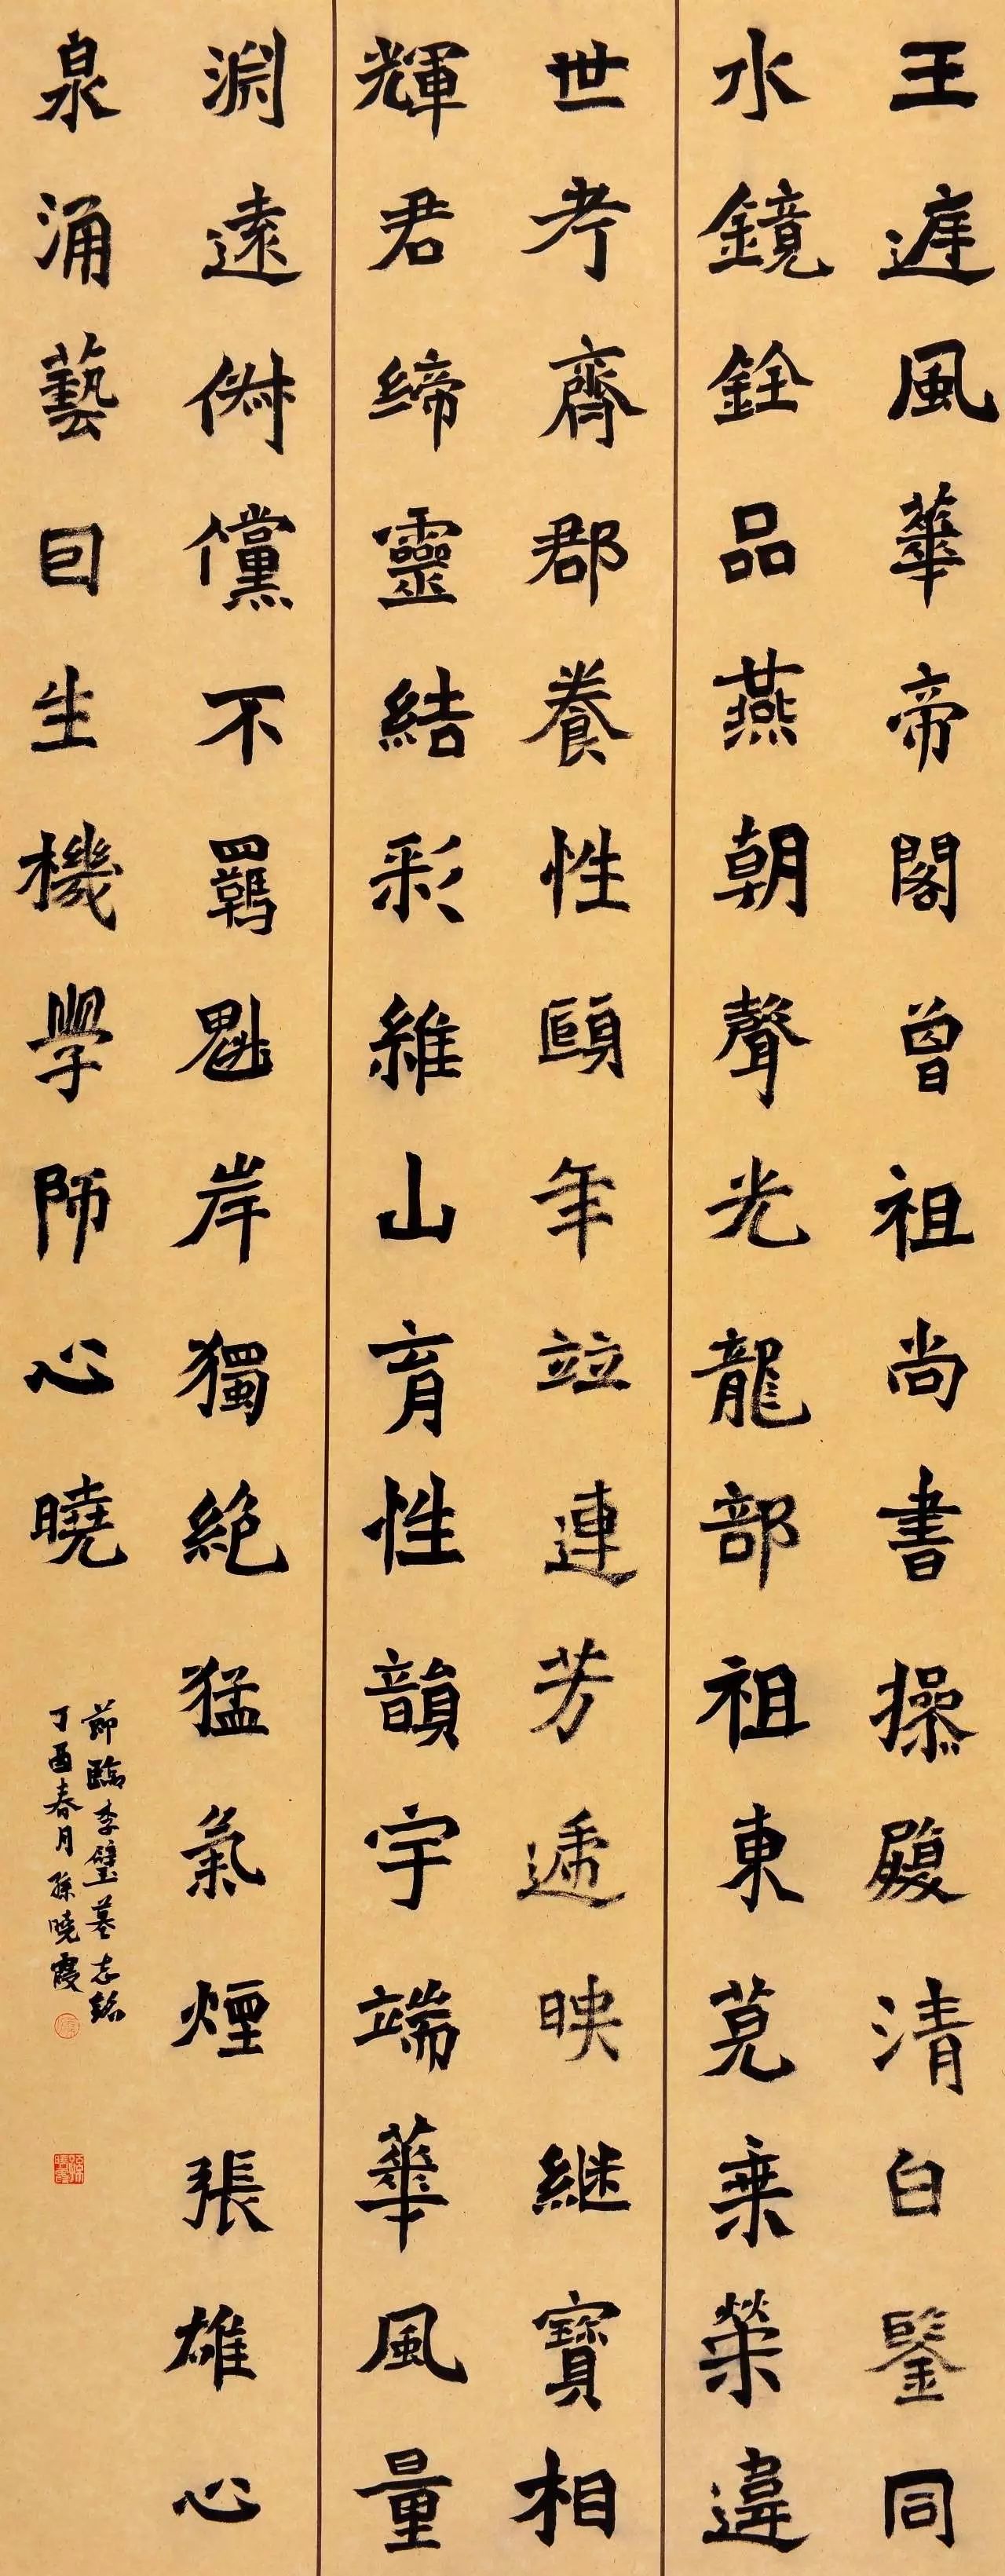 王遅風華帝閣曾祖尚書操履清白鑒同
水鏡銓品燕朝聲光龍部祖東莧乗榮違
世考齊郡養性頤年竝連芳遞映継寶相
輝君締靈結彩維山育性韻宇端華風量
淵遠倜儻不羈魁岸獨絶猛氣煙張雄心
泉涌藝囙生機學師心曉
節臨李璧墓志銘
丁酉春月孫曉霞